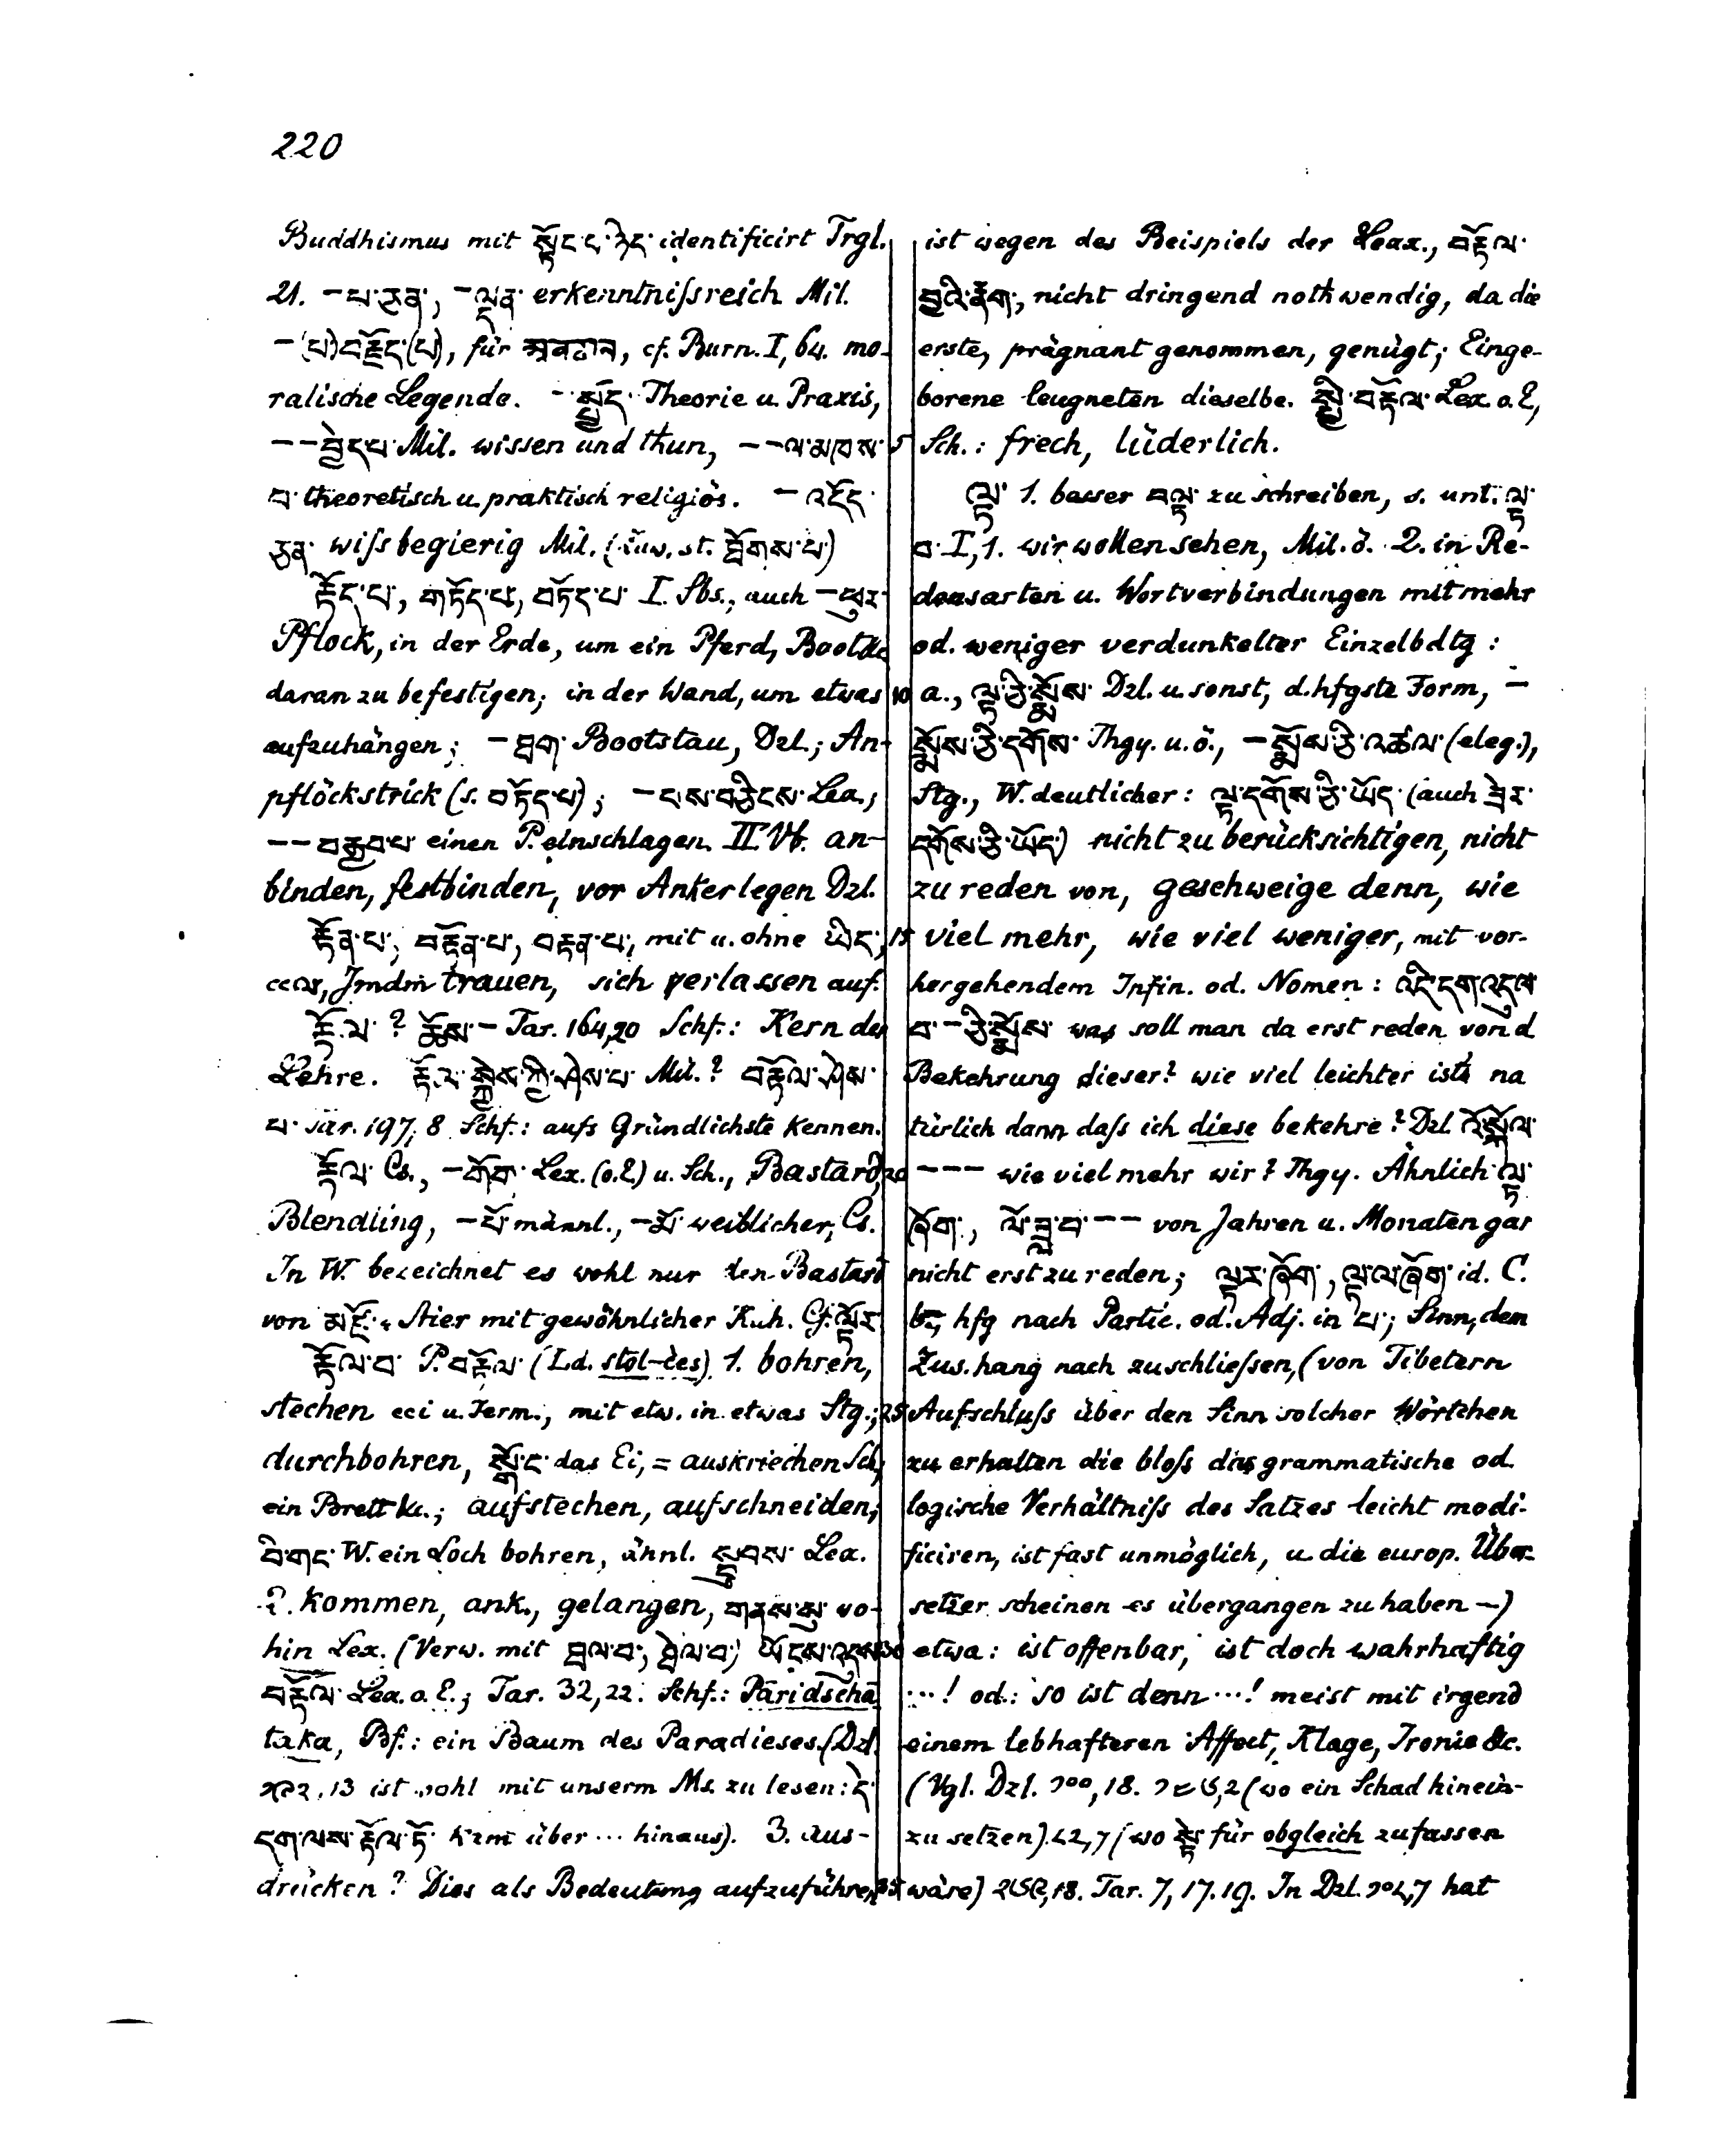 220
Buddhismus mit སྟོང་པ་ཉིད་ identificirt Trgl.
21. –པ་ཅན་, –ལྡན་ erkenntnißreich Mil.
–(པ་)བརྗོད་(པ), für अवदान, cf. Burn. I, 64. mo-
ralische Legende. –སྤྱོད་ Theorie u. Praxis,
––བྱེད་པ་ Mil. wissen und thun, ––ལ་མཁས་
པ་ theoretisch u. praktisch religiös. –འདོད་
ཅན་ wißbegierig Mil. st. རྟོགས་པ་)
རྟོད་པ་, གཏོད་པ་, བཏོད་པ་ I. Sbs., auch –ཕུར་
Pflock, in der Erde, um ein Pferd, Boot &c
daran zu befestigen; in der Wand, um etwas
aufzuhängen; –ཐག་ Bootstau, Dzl.; An-
pflöckstrick (s. བཏོད་པ); –པས་བཅིངས་ Lex.;
––བརྒྱབ་པ་ einen P. einschlagen. II. Vb. an-
binden, festbinden, vor Anker legen Dzl.
རྟོན་པ་, བརྟོན་པ་, བརྟན་པ་, mit u. ohne ཡིད་,
ccla, Jmdm trauen, sich verlassen auf.
རྟོ་ལ་? ཆོས་– Tar. 164,20 Schf.: Kern der
Lehre. Mil.? བརྟོལ་ཤེས་
པ་ Tar. 197,8 Schf.: aufs Gründlichste kennen.
རྟོལ་ Cs., –གོབ་ Lex. (o.E) u. Sch., Bastard,
Blendling, –པོ་ männl., –མོ་ weiblicher, Cs.
In W. bezeichnet es wohl nur den Bastard
von མཛོ་ Stier mit gewöhnlicher Kuh. Cf. ལྟོར་
རྟོལ་བ་ P. བརྟོལ་ (Ld. stol-ċes) 1. bohren,
stechen cci u. Term., mit etw. in etwas Stg.;
durchbohren, སྒོ་ང་ das Ei, = auskriechen Sch,
ein Brett &c.; aufstechen, aufschneiden;
བི་གང་ W. ein Loch bohren, ähnl. Lex.
2. kommen, ank., gelangen, གནས་སུ་ wo-
hin Lex. (Verw. mit ཐལ་བ་, ཐེལ་བ་) ཡོངས་འདུས་
བརྟོལ་ Lex. o. E.; Tar. 32,22. Schf.: Pāridschā
taka, Bf.: ein Baum des Paradieses. (Dzl.
༢༧༢,13 ist wohl mit unserm Ms. zu lesen: དེ་
དག་ལས་རྟོལ་ཏོ་ kam über ... hinaus). 3. aus-
drücken? Dies als Bedeutung aufzuführen,
ist wegen des Beispiels der Lexx., བརྟོལ་
བྲའི་ཚིག་, nicht dringend nothwendig, da die
erste, prägnant genommen, genügt; Einge-
borene leugneten dieselbe. སྤྱི་བརྟོལ་ Lex. o. E,
5 Sch.: frech, lüderlich.
ལྟ་ 1. besser བལྟ་ zu schreiben, s. unt. ལྟ་
བ་ I,1. wir wollen sehen, Mil. ö. 2. in Re-
densarten u. Wortverbindungen mit mehr
od. weniger verdunkelter Einzelbdtg:
10 a., ལྟ་ཅི་སྨོས་ Dzl. u. sonst, d. hfgste Form, –
སྨོས་ཅི་དགོས་ Thgy. u. ö., –སྨོས་ཅི་འཚལ་ (eleg.),
Stg., W. deutlicher: ལྟ་དགོས་ཅི་ཡོད་ (auch ཟེར་
དགོས་ཅི་ཡོད་) nicht zu berücksichtigen, nicht
zu reden von, geschweige denn, wie
15 viel mehr, wie viel weniger, mit vor-
hergehendem Infin. od. Nomen: འདི་དག་འདུལ་
བ་–ཅི་སྨོས་ was soll man da erst reden von d
Bekehrung dieser? wie viel leichter ists na
türlich dann daß ich diese bekehre? Dzl. འོ་སྐོལ་
20 ––– wie viel mehr wir? Thgy. Ähnlich ལྟ་
ཞོག་, ལོ་ཟླ་བ་–– von Jahren u. Monaten gar
nicht erst zu reden; ལྟར་ཞོག་, ལྟ་ལ་ཞོག་ id. C.
b., hfg nach Partic. od. Adj. in པ་; Sinn, dem
Zus.hang nach zu schließen, (von Tibetern
25 Aufschluß über den Sinn solcher Wörtchen
zu erhalten die bloß das grammatische od.
logische Verhältniß des Satzes leicht modi-
ficiren, ist fast unmöglich, u. die europ. Über-
setzer scheinen es übergangen zu haben –)
30 etwa: ist offenbar, ist doch wahrhaftig
...! od.: so ist denn ...! meist mit irgend
einem lebhafteren Affect, Klage, Ironie &c.
(Vgl. Dzl. ༡༠༠, 18. (wo ein Schad hinein-
zu setzen). ,7 (wo སྟེ་ für obgleich zu fassen
35 wäre) ,18. Tar. 7, 17. 19. In Dzl. ,7 hat